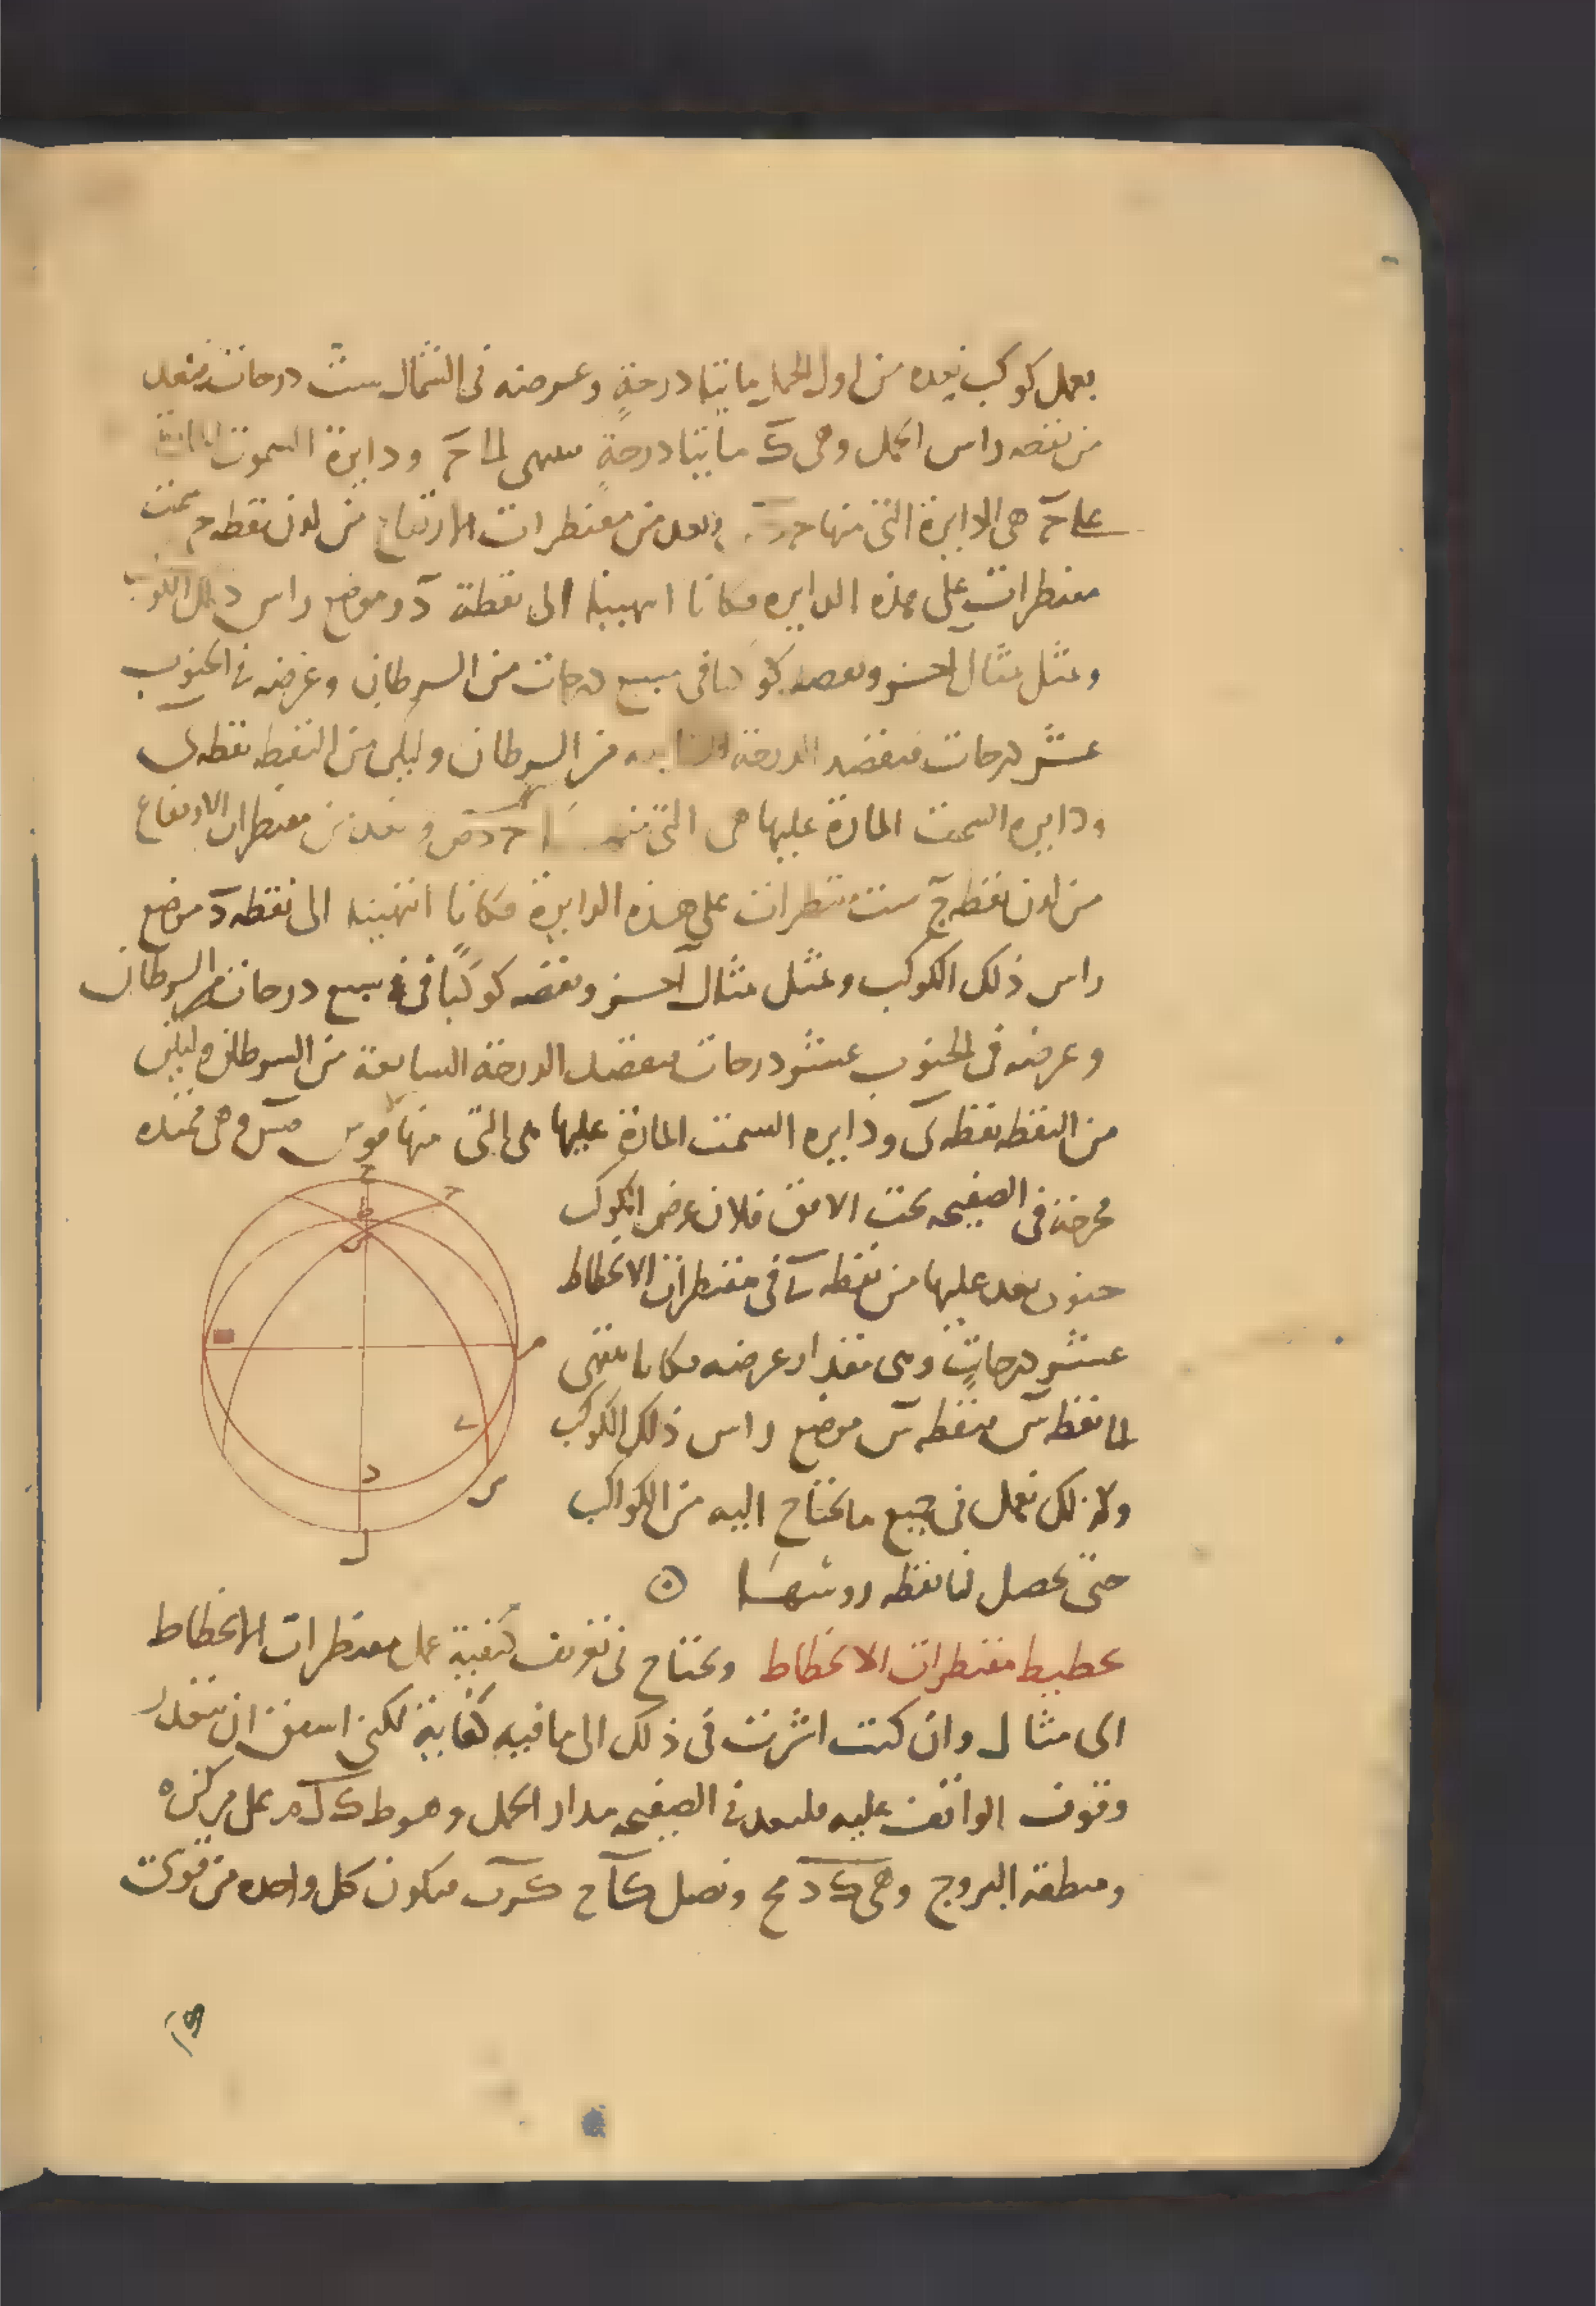 بعمل كوكب بعده من اول الحمل مايتا درجةٍ وعرضه فى الشمال ست درجات فنعد
من نقطه راس الحمل وهى ك مايتا درجةٍ ينتهى الى ح ودايرة السموت
على ح هى الدايرة التى منها ونعد من مقنطرات الارتفاع من لدن نقطه ح ست
مقنطرات على هذه الدايره فكانا انتهينا الى نقطة د وموضع راس ذلك الكوكب
ونمثل مثال اخر ونقصد كوكبا فى سبع درجات من السرطان وعرضه فى الجنوب
عشر درجات فنقصد الدرجة السابعه من السرطان وليكن من النقط نقطه ى
ودايره السمت المارة عليها هى التى ونعد من مقنطرات الارتفاع
من لدن نقطه ح ست مقنطرات على هذه الدايرة فكانا انتهينا الى نقطه د موضع
راس ذلك الكوكب ونمثل مثال آخر ونقصد كوكبًا فى سبع درجات من السرطان
وعرضه فى الجنوب عشر درجات فنقصد الدرجة السابعة من السرطان وليكن
من النقطه نقطه ى ودايره السمت المارة عليها هى التى منها قوس وهى ممتده
مخرجة فى الصفيحه تحت الافق فلان عرض الكوكب
جنوبى نعد عليها من نقطه ى فى مقنطرات الانحطاط
عشر درجاتٍ وهى مقدار عرضه فكانا ننتهى
الى نقطه س فنقطه س موضع راس ذلك الكوكب
وكذلك نعمل فى جميع ما نحتاج اليه من الكواكب
حتى تحصل لنا نقطه روسها
تخطيط مقنطرات الانحطاط ونحتاج فى تعريف كيفية عمل مقنطرات الانحطاط
الى مثال وان كنت اشرت فى ذلك الى ما فيه كفاية لكنى اشفق ان يتعذر
وقوف الواقف عليه فلنعد فى الصفيحه مدار الحمل وهو ط ك ل م على مركز ه
ومنطقة البروج وهى ك د م ح ونصل فيكون كل واحده من قوسى
ح
ح
ط
س
م
د
ل